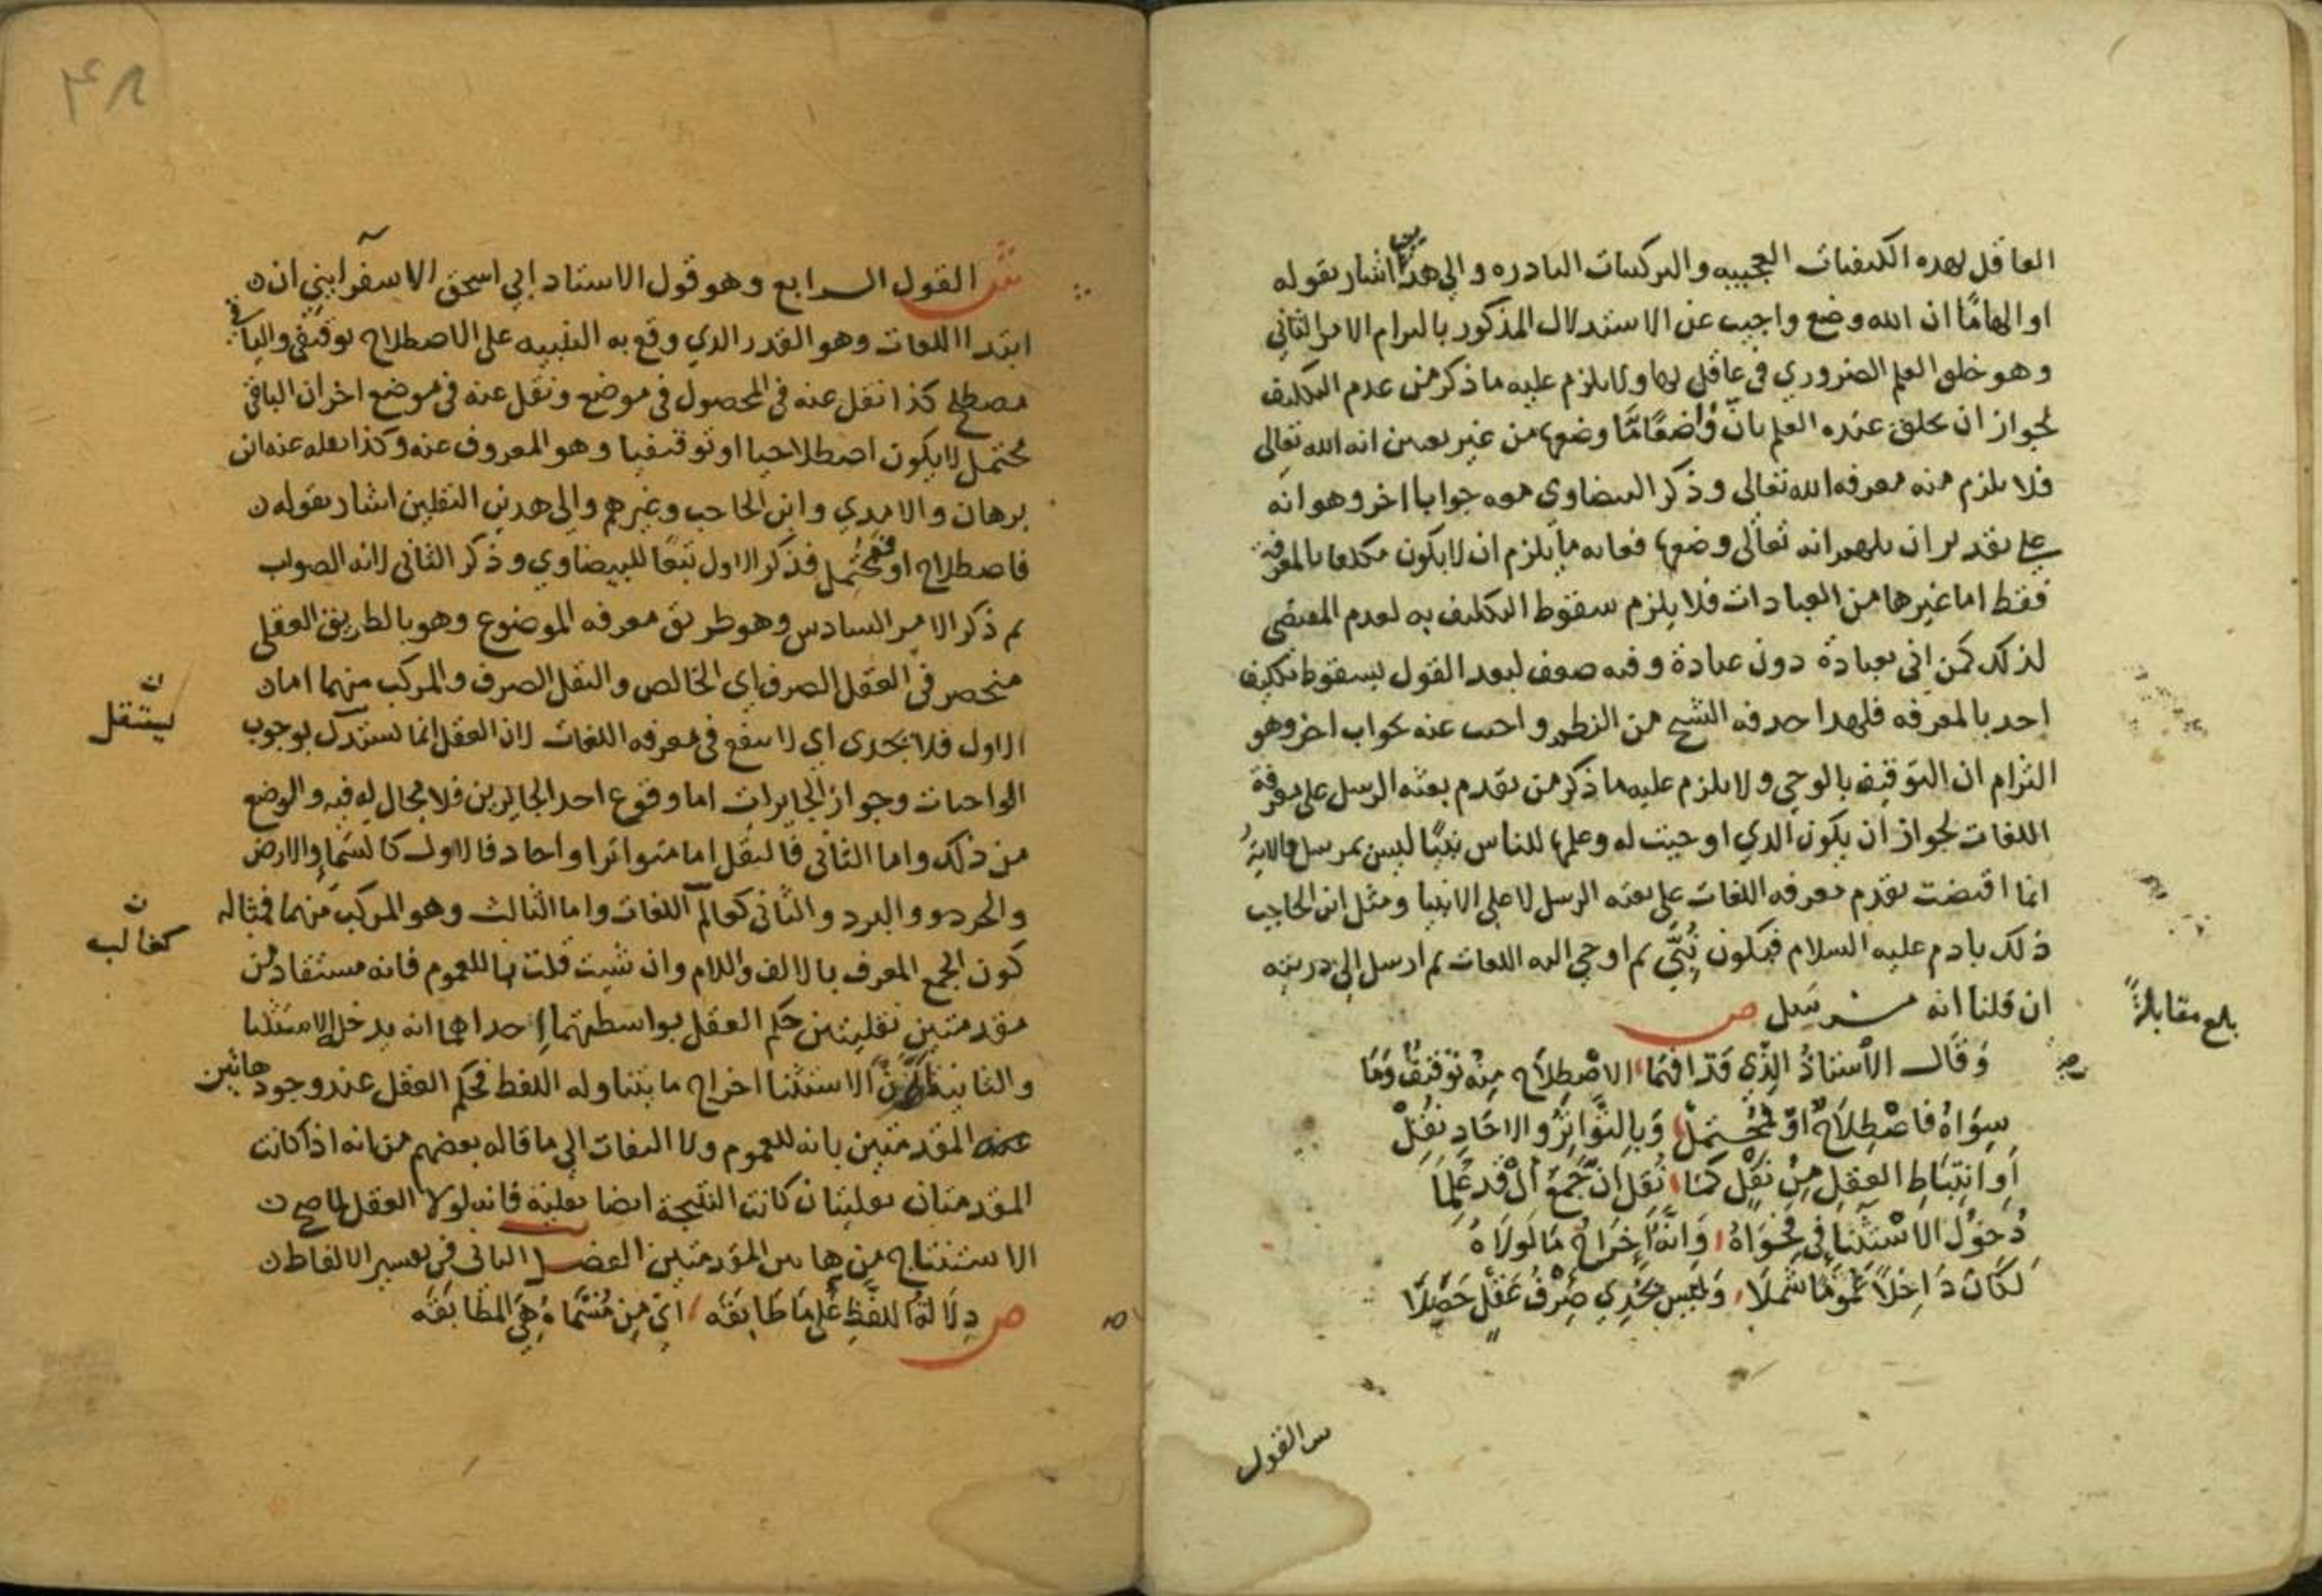 العاقل لهده الكيفيات العجيبه والتركيبات النادره والى هذين اشار بقوله
او الهامًا ان الله وضع واجيب عن الاستدلال المذكور بالترام الامر الثاني
وهو خلق العلم الضروري في عاقل لها ولا يلزم عليه ما ذكر من عدم التكليف
لجواز ان يخلق عنده العلم بان واضعًا مّا وضعها من غير تعيين انه الله تعالى
فلا يلزم منه معرفه الله تعالى وذكر البيضاوي معه جوابا اخر وهو انه
على تقدير ان يلهم انه تعالى وضعها فغايه ما يلزم ان لا يكون مكلفا بالمعرفة
فقط اما غيرها من العبادات فلا يلزم سقوط التكليف به لعدم المقتضي
لذلك كمن اتى بعبادة دون عبادة وفيه ضعف لبعد القول بسقوط تكليف
احد بالمعرفه فلهذا حدفه الشيخ من النظم واجيب عنه بجواب اخر وهو
التزام ان التوقيف بالوحي ولا يلزم عليه ما ذكر من تقدم بعثه الرسل على معرفة
اللغات لجواز ان يكون الذي اوحيت له وعلمها للناس نبيًا ليس بمرسل والاية
انما اقتضت تقدم معرفه اللغات على بعثه الرسل لا على الانبيا ومثل ابن الحاجب
ذلك بادم عليه السلام فيكون نُبِّيَ ثم اوحي اليه اللغات ثم ارسل الى ذريته
ان قلنا انه مرسل ص
بلغ مقابلةً
وَقَالَ الأُسْتَاذُ الذِي قَدْ افهَمَا الاصْطِلَاح مِنْهُ تَوْقِيفٌ وَمَا
سِوَاهُ فَاصْطِلَاحٌ اوْ مُحْتَمِلْ وَبِالتَّوَاتُرِ والاحَادِ نُقِلْ
أوِ انتِبَاطِ العَقلِ مِنْ نَقْلٍ كَمَا نُقِلَ انَّ جَمْعَ أَلْ قَد عُلِمَا
دُخُولُ الاسْتِثْنَا فِي فَحْوَاهُ وَانَّهُ إخرَاجُ مَا لَولَاهُ
لكَانَ دَاخِلًا عُمُومًا شَمَلَا وَلَيسَ يُجْدِي صِرْفُ عَقْلٍ حَصَّلَا
س القول
٤٨
ش القول الرابع وهو قول الاستاد ابي اسحق الاسفرايني ان
ابتدا اللغات وهو القدر الذي وقع به التنبيه على الاصطلاح توقيفي والباقي
مصطلح كذا نقل عنه في المحصول في موضع ونقل عنه في موضع اخر ان الباقي
محتمل لا يكون اصطلاحيا او توقيفيا وهو المعروف عنه وكذا نقله عنه ابن
برهان والامدي وابن الحاجب وغيرهم والى هدين النقلين اشار بقوله
فاصطلاح او محتمل فذكر الاول تبعًا للبيضاوي وذكر الثاني لانه الصواب
ثم ذكر الامر السادس وهو طريق معرفه الموضوع وهو بالطريق العقلي
منحصر في العقل الصرف اي الخالص والنقل الصرف والمركب منهما اما
الاول فلا يجدى اي لا ينفع في معرفه اللغات لان العقل انما يستدل بوجوب
ن
يستقل
الواجبات وجواز الجايزات اما وقوع احد الجايزين فلا مجال له فيه والوضع
من ذلك واما الثاني فالنقل اما متواترا او احاد فالاول كالسما والارض
والحر والبرد والثاني كعالم اللغات واما الثالث وهو المركب منهما فمثاله
ن
كغالب
كون الجمع المعرف بالالف واللام وان شيت قلت بال للعموم فانه مستفاد من
مقدمتين نقليتين حكم العقل بواسطتهما احداهما انه يدخل الاستثنا
والثانية ان الاستثنا اخراج ما يتناوله اللفظ فحكم العقل عند وجود هاتين
المقدمتين بانه للعموم ولا التفات الى ما قاله بعضهم من انه اذا كانت
المقدمتان نقليتان كانت النتيجة ايضا نقلية فانه لولا العقل لما صح
الاستنتاج من هاتين المقدمتين الفصل الثاني في تقسير الالفاظ
ص دِلَالَةُ اللفْظِ عَلَى مَا طَابَقَه اي مِن مُسَمَّاهُ هِيَ المطَابَقَه